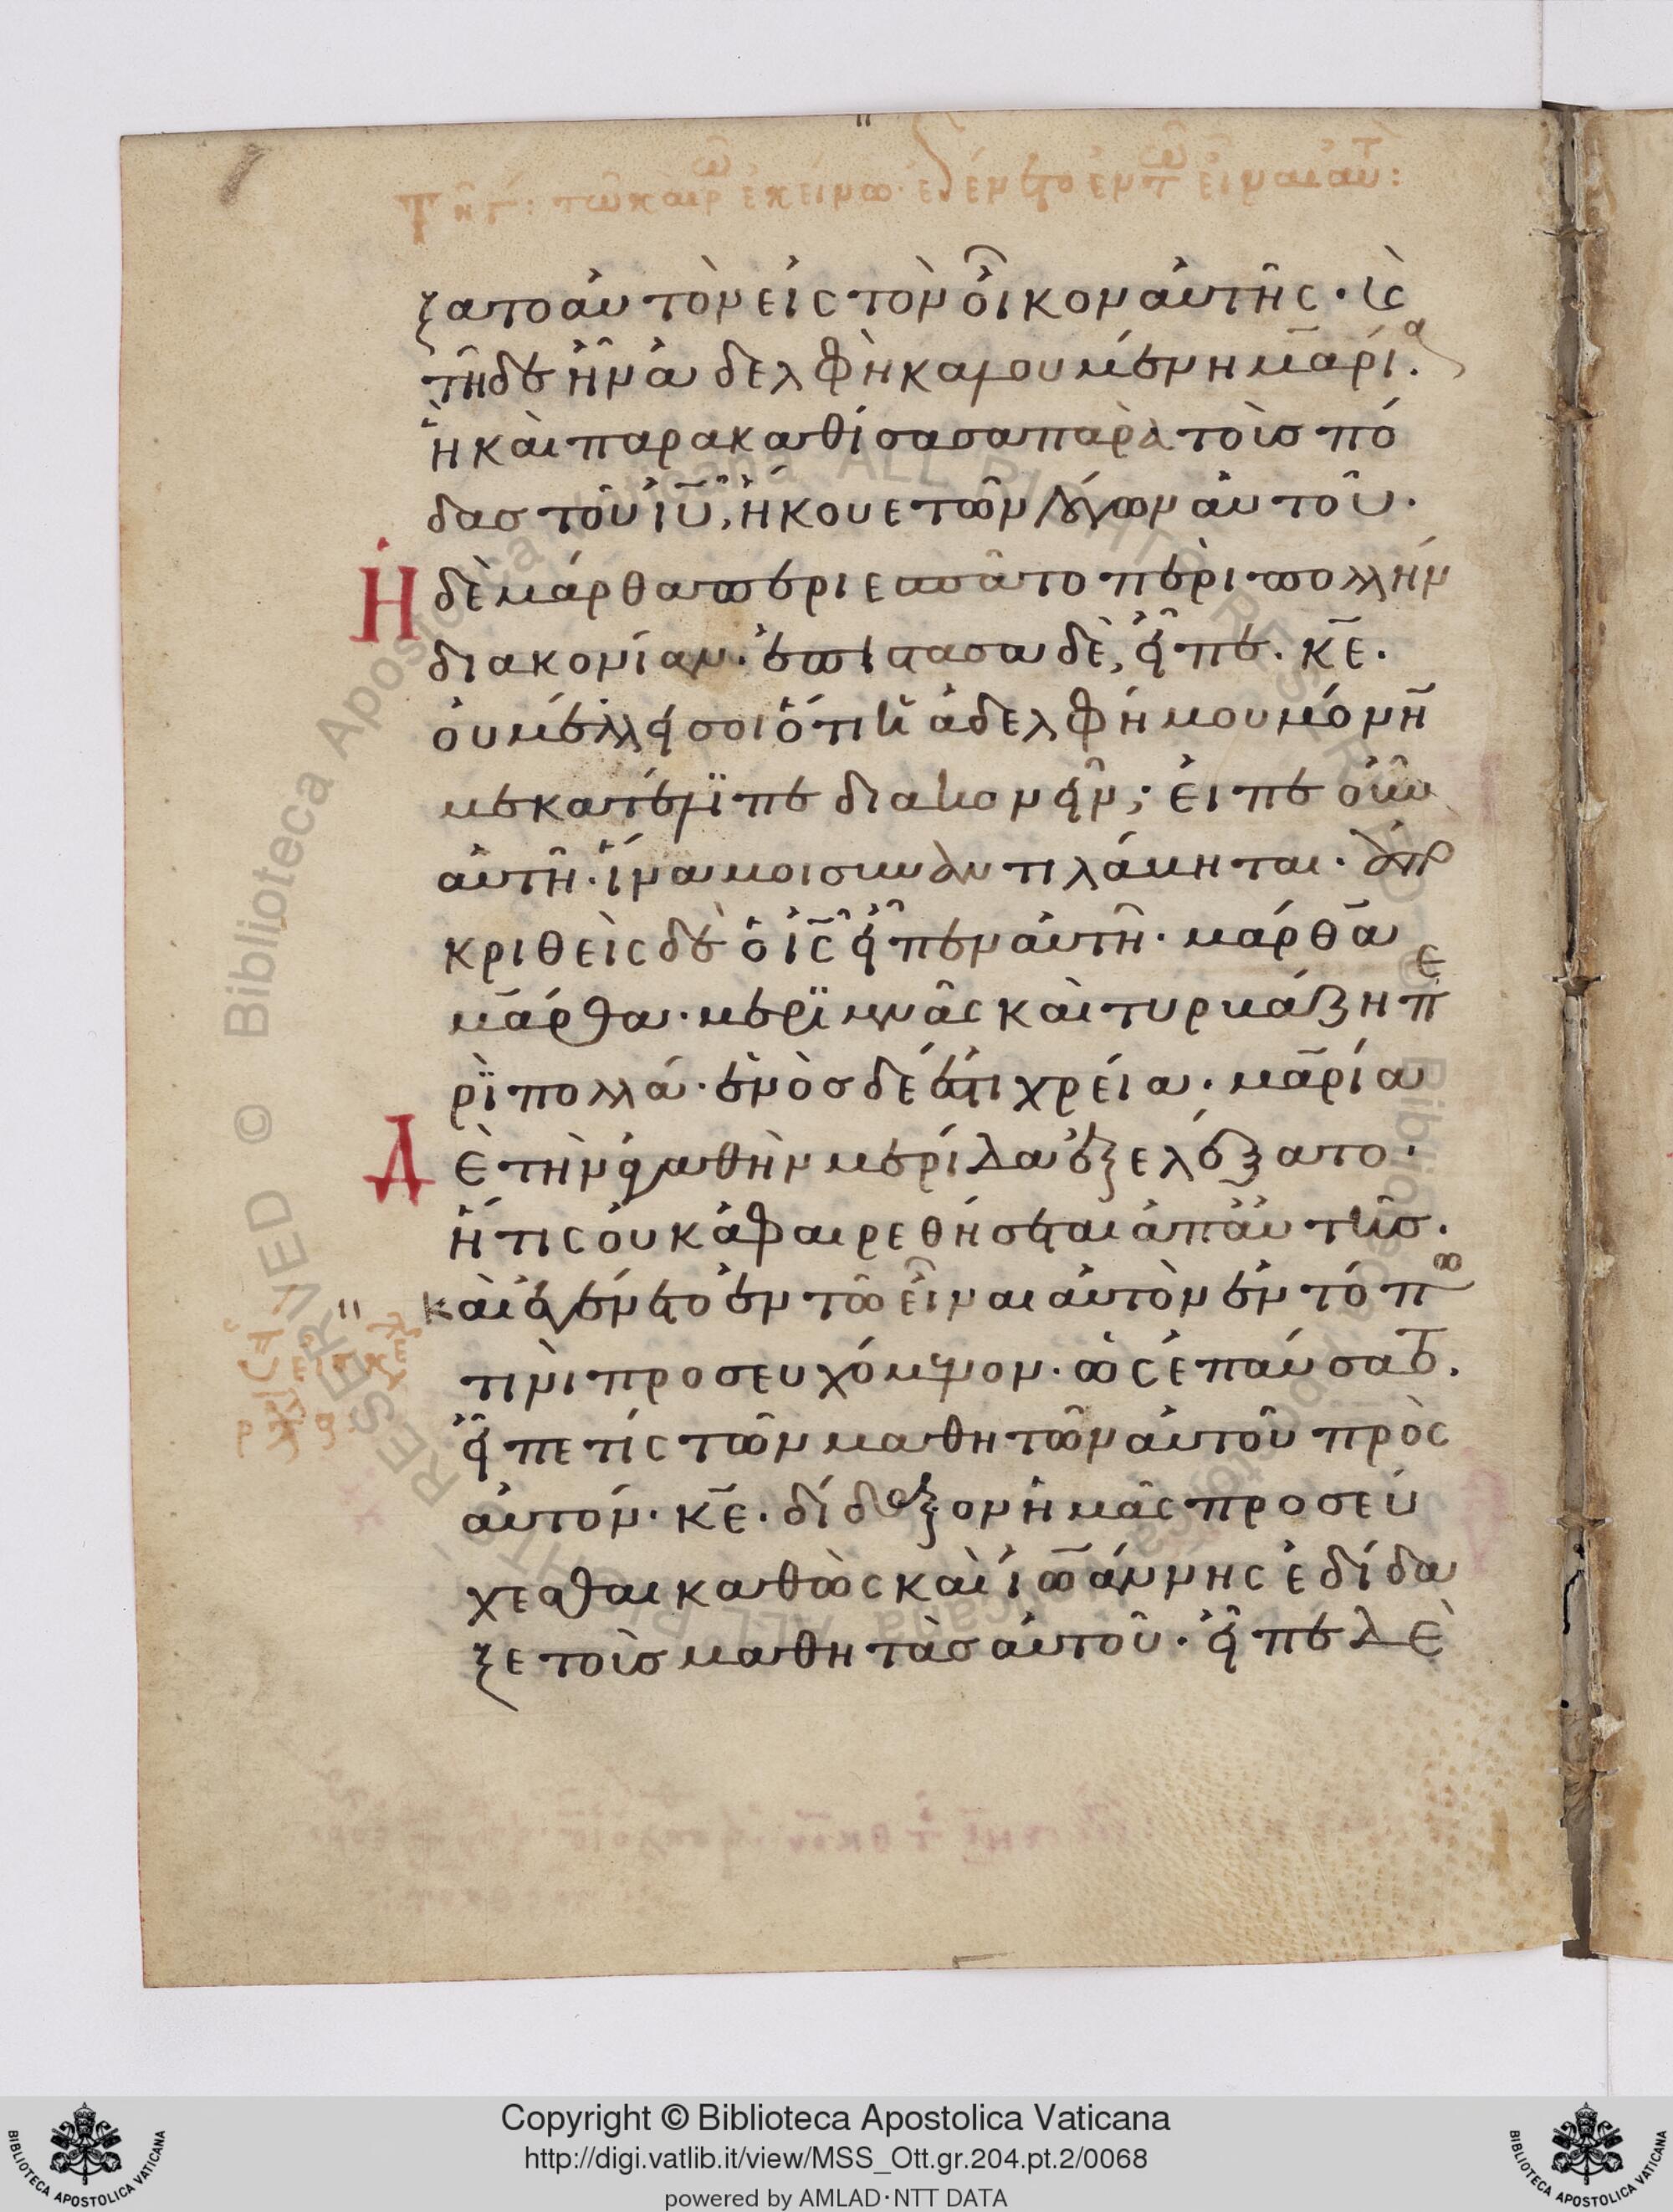 ξατο αὐτὸν εἰς τὸν οἶκον αὐτῆς· κ(αὶ)
τῆδε ἦν ἀδελφὴ καλουμένη μαρία.
ἣ καὶ παρακαθίσασα παρὰ τοὺσ πό
δασ τοῦ ἰῦ, ἤκουε τῶν λόγων αὐτοῦ.
Ἡ δὲ μάρθα περιεσπᾶτο περὶ πολλὴν
διακονίαν. ἐπιστᾶσα δὲ, εἶπε. κε̄.
οὐ μέλει σοι ὅτι ἡ ἀδελφή μου μόνη̄
με κατέλϊπε διακονεῖν; εἰπὲ οὖν
αὐτῆ. ἵνα μοι συναντιλάβηται. ἀπο
κριθεὶς δὲ ὁ ἰς̄ εἶπεν αὐτῆ. μάρθα
μάρθα. μερϊμνᾶς καὶ τυρβάζη πε
ρὶ πολλά. ἑνὸσ δέ ἐστι χρεία. μαρία
Δὲ τὴν ἀγαθὴν μερίδα ἐξελέξατο.
ἥτις οὐκ ἀφαιρεθήσεται ἀπ' αὐτῆσ.
καὶ ἐγένετο ἐν τῶ εἶναι αὐτὸν ἐν τόπω
τινὶ προσευχόμενον. ὡς ἐπαύσατο.
εἶπε τίς τῶν μαθητῶν αὐτοῦ πρὸς
αὐτόν. κε̄. δίδαξον ἡμᾶς προσεύ
χεσθαι καθὼς καὶ ἰωάννης ἐδίδα
ξε τοὺσ μαθητὰσ αὐτοῦ. εἶπε δὲ
Copyright © Biblioteca Apostolica Vaticana
http://digi.vatlib.it/view/MSS_Ott.gr.204.pt.2/0068
powered by AMLAD·NTT DATA
BIBLIOTECA APOSTOLICA VATICANA
BIBLIOTECA APOSTOLICA VATICANA